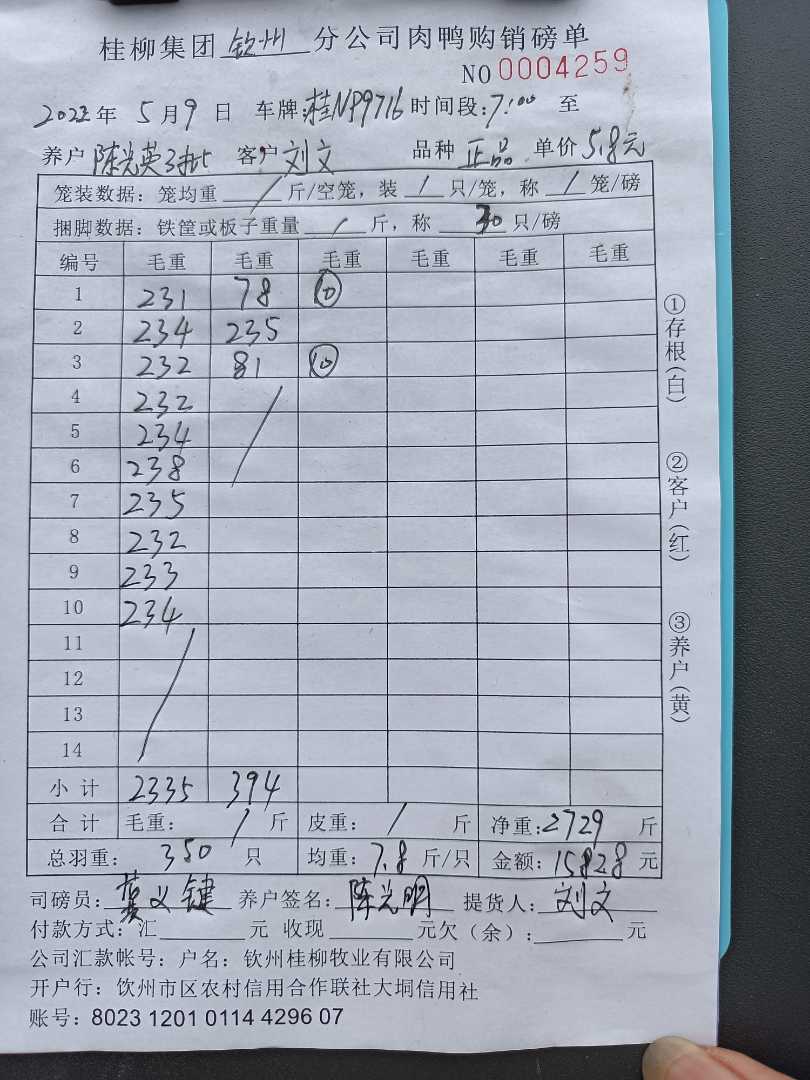 桂柳集团 钦州 分公司肉鸭购销磅单
NO 0004259
2022年 5月9日 车牌:桂NP9716 时间段:7:00 至
养户 陈光英3批 客户 刘文 品种 正品 单价 5.8元
笼装数据：笼均重 / 斤/空笼，装 / 只/笼，称 / 笼/磅
捆脚数据：铁筐或板子重量 / 斤，称 30 只/磅
编号 毛重 毛重 毛重 毛重 毛重 毛重
1 231 78 ⑩
2 234 235
3 232 81 ⑩
4 232 /
5 234
6 238
7 235
8 232
9 233
10 234
11 /
12
13
14
小计 2335 394
合计 毛重： / 斤 皮重： / 斤 净重：2729 斤
总羽重： 350 只 均重：7.8 斤/只 金额：15828 元
司磅员： 义键 养户签名：陈光明 提货人：刘文
付款方式：汇 元 收现 元欠（余）： 元
公司汇款帐号：户名：钦州桂柳牧业有限公司
开户行：钦州市区农村信用合作联社大垌信用社
账号：8023 1201 0114 4296 07
①存根(白)
②客户(红)
③养户(黄)